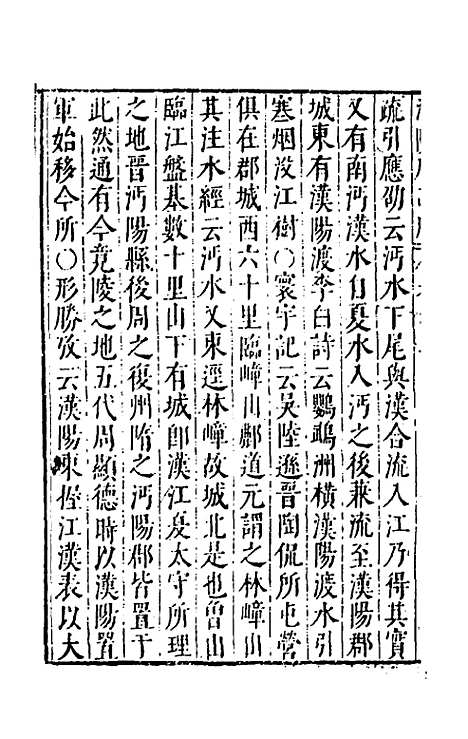 疏引應劭云沔水下尾與漢合流入江乃得其實
又有南沔漢水自夏水入沔之後兼流至漢陽郡
城東有漢陽渡李白詩云鸚鵡洲橫漢陽渡水引
寒烟没江樹〇寰宇記云吴陸遜晉陶侃所屯營
俱在郡城西六十里臨嶂山酈道元謂之林嶂山
其注水經云沔水又東逕林嶂故城北是也魯山
臨江盤基數十里山下有城即漢江夏太守所理
之地晉沔陽縣後周之復州隋之沔陽郡皆置于
此然通有今竟陵之地五代周顯德時以漢陽置
軍始移今所〇形勝攷云漢陽東控江漢表以大